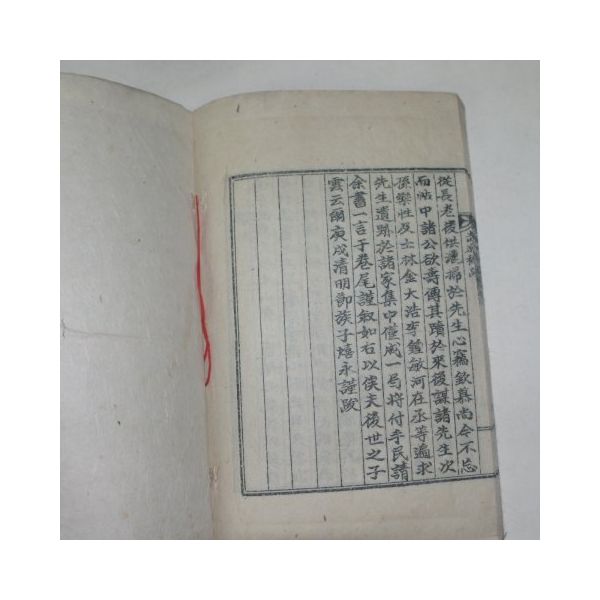 從長老後供灑掃於先生心竊欽慕尚今不忘
而帖中諸公欲壽傳其蹟於來後謀諸先生次
孫樂性及士林金大浩李鍾敏河在丞等遍求
先生遺蹟於諸家集中僅成一局將付手民請
余書一言于卷尾謹叙如右以俟夫後世之子
雲云爾庚戌淸明節族子熺永謹跋